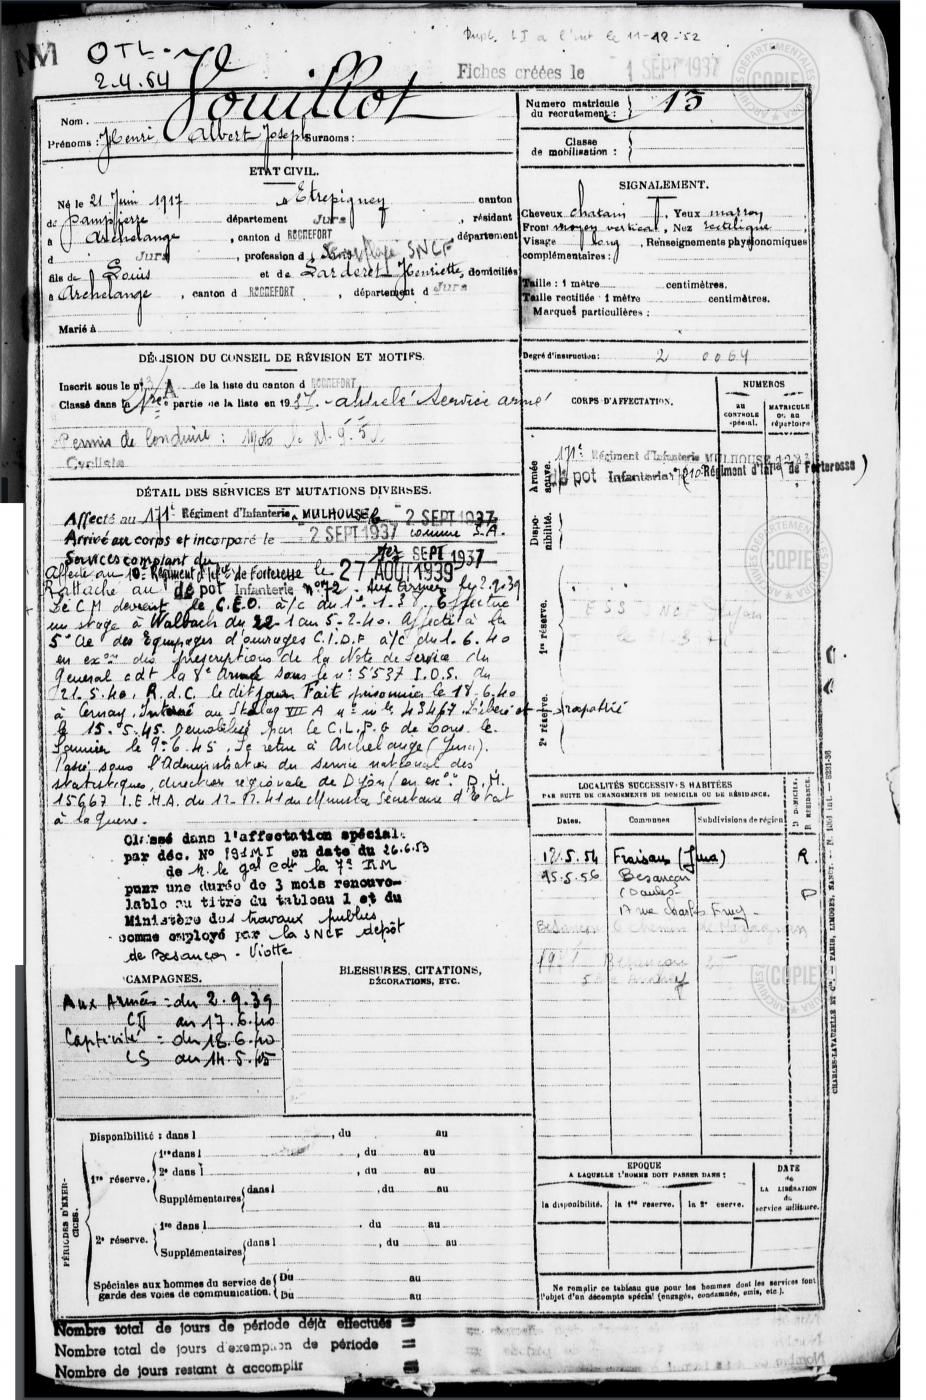 NM
OTL -
2.4.54
Dupl. 11-12-52
Fiches créées le 1 SEPT 1937
ARCHIVES DÉPARTEMENTALES JURA COPIE
Nom. Vouillot
Prénoms : Henri Albert Joseph Surnoms :
Numero matricule du recrutement : 13
Classe de mobilisation :
ETAT CIVIL.
Né le 21 Juin 1917 à Etrepigney canton
de Dampierre département Jura, résidant
à Archelange, canton d ROCHEFORT, département
d Jura, profession d' Employé SNCF
fils de Louis et de Larderet Henriette, domiciliés
à Archelange, canton d ROCHEFORT, département d Jura
Marié à
SIGNALEMENT.
Cheveux chatain, Yeux marron
Front moyen vertical, Nez rectiligne
Visage long, Renseignements physionomiques
complémentaires :
Taille : 1 mètre centimètres.
Taille rectifiée 1 mètre centimètres.
Marques particulières :
Degré d'instruction : 2 0064
DÉCISION DU CONSEIL DE RÉVISION ET MOTIFS.
Inscrit sous le n° 3 A de la liste du canton d ROCHEFORT
Classé dans la 1re partie de la liste en 1937. Service armé
Permis de Conduire : Moto
Cycliste
CORPS D'AFFECTATION.
NUMEROS
AU CONTROLE spécial.
MATRICULE OU au répertoire
Armée active.
171e Régiment d'Infanterie MULHOUSE
dépot Infanterie 72 10e Régiment d'Infie de Forteresse
Disponibilité.
1re réserve.
ESS SNCF
2e réserve.
DÉTAIL DES SERVICES ET MUTATIONS DIVERSES.
Affecté au 171e Régiment d'Infanterie MULHOUSE le 2 SEPT 1937
Arrivé au corps et incorporé le 2 SEPT 1937 comme S.A.
Services comptant du 1er SEPT 1937
Affecté au 10e Régiment d'Infie de Forteresse le 27 AOUT 1939
Rattaché au dépot Infanterie n° 72. Aux Armées le 2.9.39
De C M devient le C.E.O. a/c du 1.1.38. Effectue
un stage à Walbach du 22-1 au 5-2-40. Affecté à la
5e Cie des Equipages d'ouvrages C.I.D.F a/c du 1.6.40
en exon des prescriptions de la Note de Service du
Général cdt la 8e Armée sous le n° 5537 I.O.S. du
21.5.40. R.d.C. le dit jour. Fait prisonnier le 18.6.40
à Cernay. Interné au Stalag VII A n° mle 43467. Libéré et rapatrié
le 15.5.45. Demobilisé par le C.L.P.G de Lons le
Saunier le 9.6.45. Se retire à Archelange (Jura).
Passé sous l'Administration du service national des
statistiques, direction régionale de Dijon (en exon D.M.
15667 I.E.M.A. du Ministre Secrétaire d'Etat
à la guerre.
Classé dans l'affectation spéciale
par déc. N° 191MI en date du 26.6.53
de M. le gal Cdt la 7e RM
pour une durée de 3 mois renouve-
lable au titre du tableau 1 et du
Ministère des travaux publics
comme employé par la SNCF depôt
de Besançon - Viotte
LOCALITÉS SUCCESSIVES HABITÉES
PAR SUITE DE CHANGEMENTS DE DOMICILE OU DE RÉSIDENCE.
Dates. Communes Subdivisions de région D DOMICILE. R RESIDENCE.
12.5.54 Fraisans (Jura) R.
15-5-56 Besançon D
(Doubs)
17 rue Charles
Besançon Chemin de
Besançon
CAMPAGNES.
Aux Armées : du 2.9.39
CD au 17.6.40
Captivité : du 18.6.40
CS au 14.5.45
BLESSURES, CITATIONS,
DÉCORATIONS, ETC.
PÉRIODES D'EXERCICES.
Disponibilité : dans l , du au
1re réserve. 1re dans l , du au
2e dans l , du au
Supplémentaires dans l , du au
2e réserve. 1re dans l , du au
Supplémentaires dans l , du au
Spéciales aux hommes du service de Du au
garde des voies de communication. Du au
EPOQUE
A LAQUELLE L'HOMME DOIT PASSER DANS :
la disponibilité. la 1re reserve. la 2e eserve.
DATE
de
LA LIBÉRATION
du
service militaire.
Ne remplir ce tableau que pour les hommes dont les services font
l'objet d'un décompte spécial (engagés, condamnés, omis, etc.).
CHARLES-LAVAUZELLE ET Cie. — PARIS, LIMOGES, NANCY.
Nombre total de jours de période déjà effectués =
Nombre total de jours d'exemption de période =
Nombre de jours restant à accomplir =